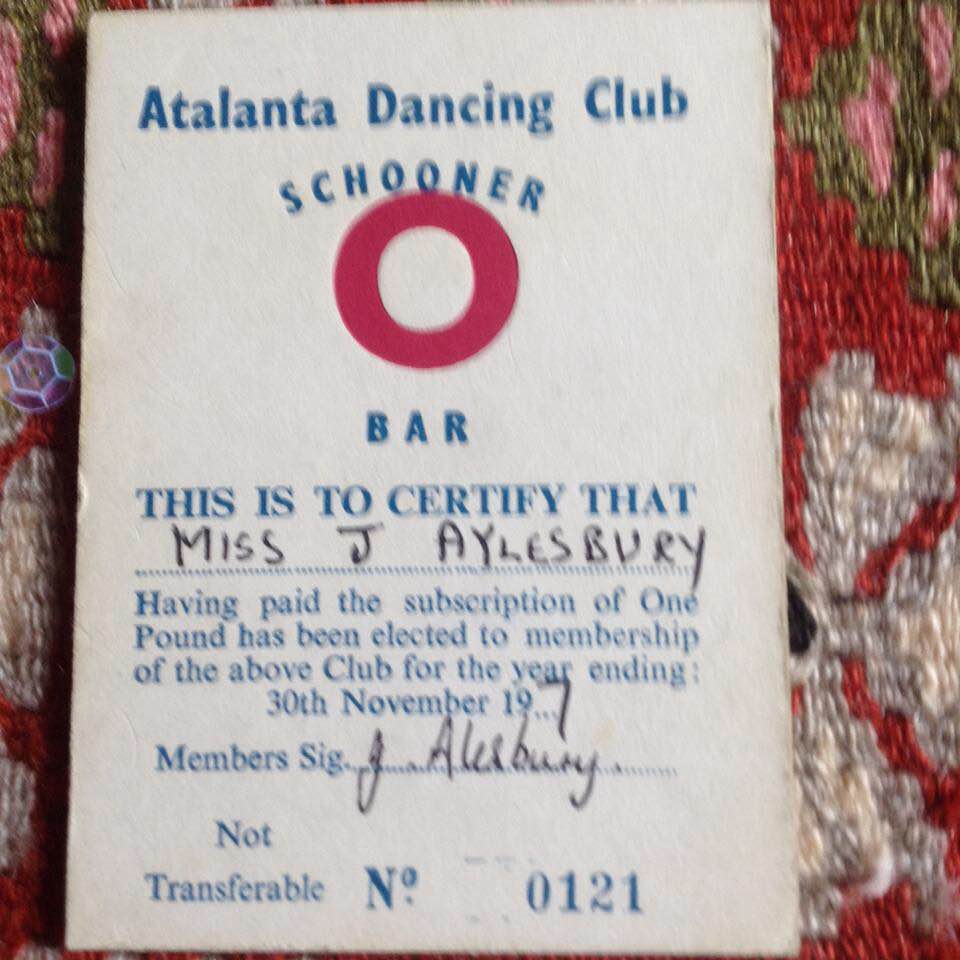 Atalanta Dancing Club
SCHOONER
O
BAR
THIS IS TO CERTIFY THAT
MISS J AYLESBURY
Having paid the subscription of One
Pound has been elected to membership
of the above Club for the year ending:
30th November 19...7
Members Sig. J. Alesbury
Not
Transferable Nº 0121